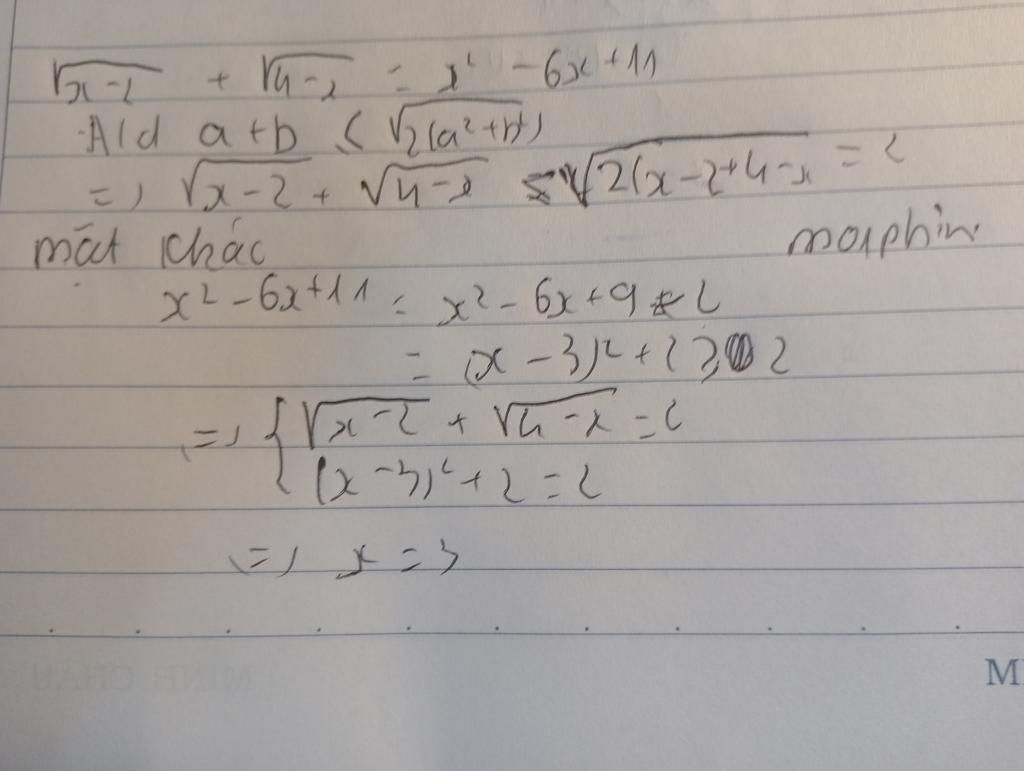 √(x-2) + √(4-x) = x² - 6x + 11
Ald a+b ≤ √(2(a²+b²))
=> √(x-2) + √(4-x) ≤ √(2(x-2+4-x) = 2
mặt khác morphin
x² - 6x + 11 = x² - 6x + 9 + 2
= (x - 3)² + 2 ≥ 2
=> { √(x-2) + √(4-x) = 2
(x-3)² + 2 = 2
=> x = 3
MINH CHÂU